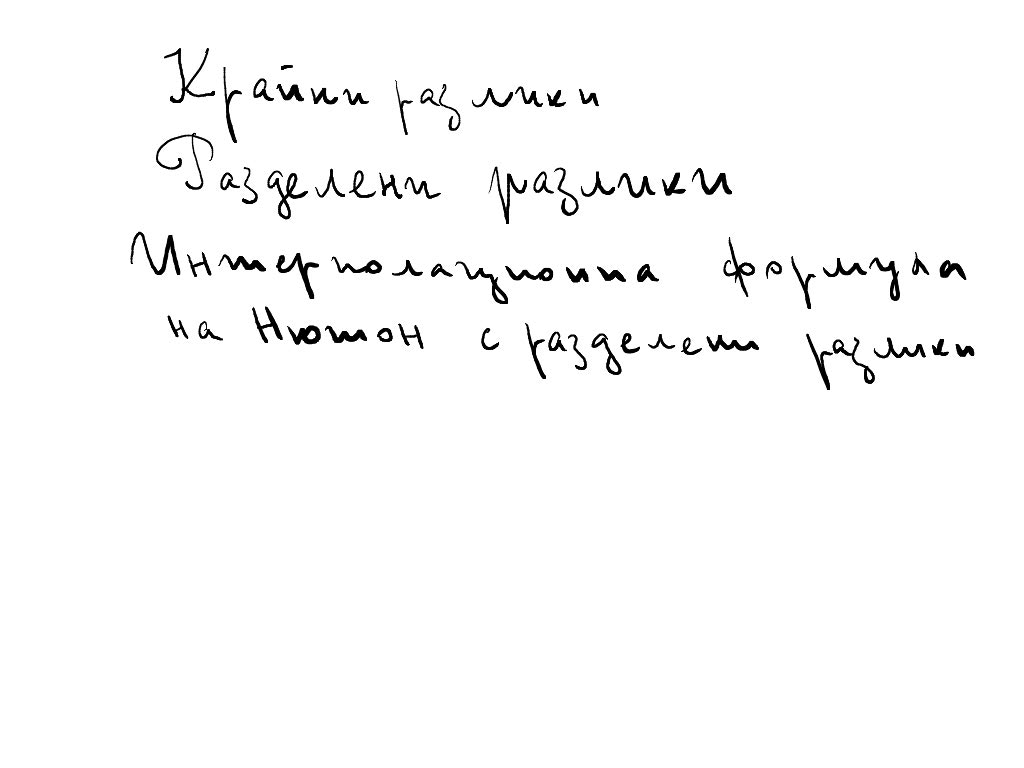 Крайни разлики
Разделени разлики
Интерполационна формула
на Нютон с разделени разлики